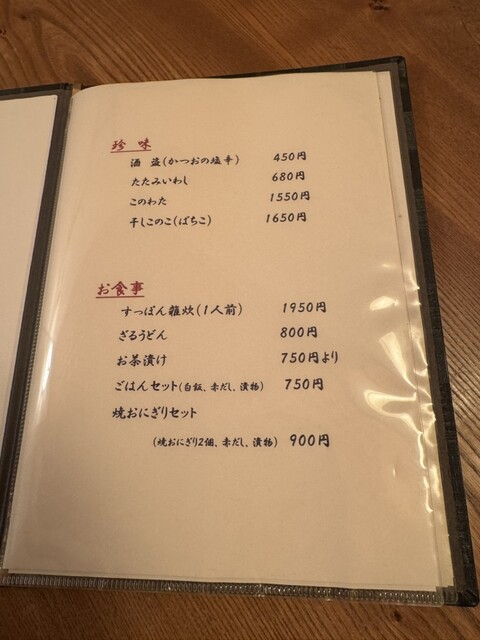 珍味
酒盗(かつおの塩辛) 450円
たたみいわし 680円
このわた 1550円
干しこのこ(ばちこ) 1650円
お食事
すっぽん雑炊(1人前) 1950円
ざるうどん 800円
お茶漬け 750円より
ごはんセット(白飯、赤だし、漬物) 750円
焼おにぎりセット
(焼おにぎり2個、赤だし、漬物) 900円